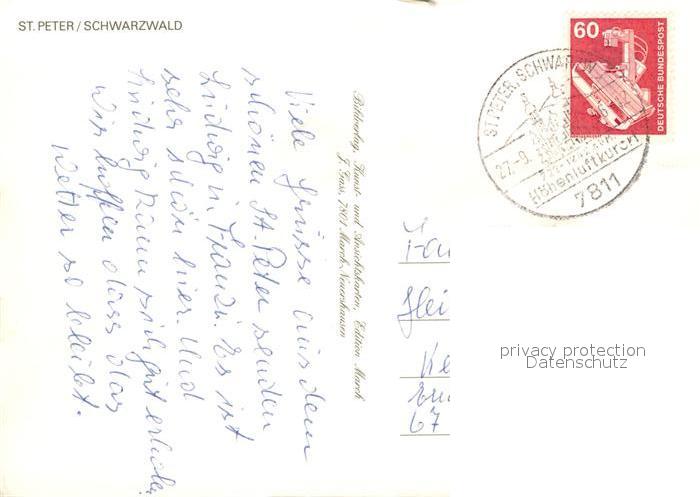 ST. PETER / SCHWARZWALD
Viele Grüsse aus dem
schönen St. Peter senden
Ludwig u. Es ist
sehr schön hier. Und
Ludwig kann sich gut erholen
Wir hoffen dass das
Wetter so bleibt.
Bildverlag, Kunst- und Ansichtskarten, Edition March
7801 March-Neuershausen
60
DEUTSCHE BUNDESPOST
ST. PETER, SCHWARZW
27.-9.
Höhenluftkuror
7811
Fa
Hei
Ke
67
privacy protection
Datenschutz